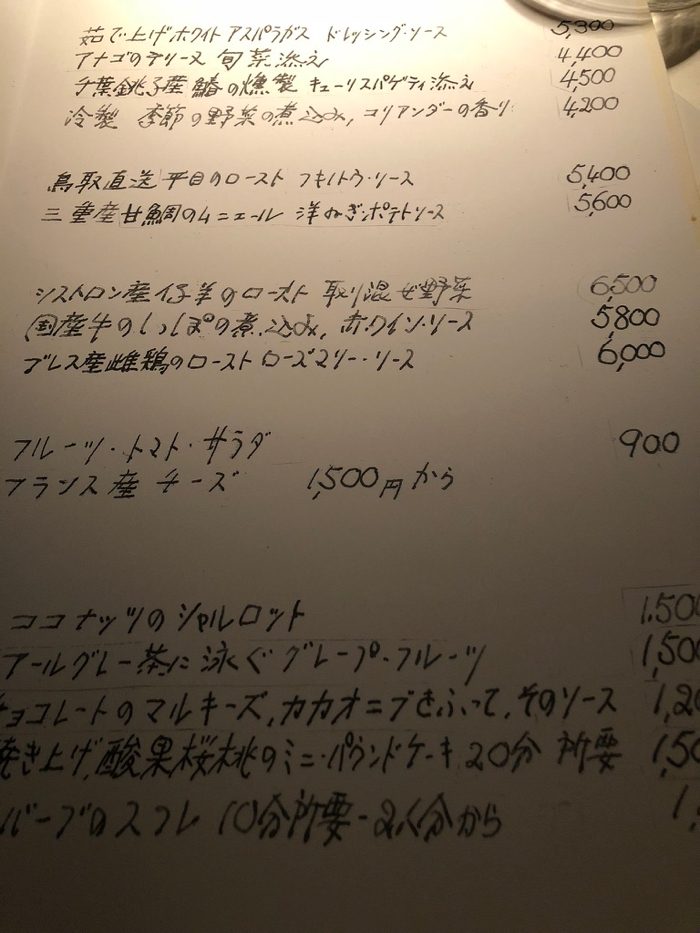 茹で上げホワイトアスパラガス ドレッシング・ソース 5,300
アナゴのテリーヌ 旬菜添え 4,400
千葉銚子産鰆の燻製 キューリスパゲティ添え 4,500
冷製 季節の野菜の煮込み, コリアンダーの香り 4,200
鳥取直送 平目のロースト フキノトウ・ソース 5,400
三重産甘鯛のムニエール 洋ねぎ・ポテトソース 5,600
シストロン産仔羊のロースト 取り混ぜ野菜 6,500
国産牛のしっぽの煮込み, 赤ワイン・ソース 5,800
ブレス産雌鶏のロースト ローズマリー・ソース 6,000
フルーツ・トマト・サラダ 900
フランス産 チーズ 1,500円から
ココナッツのシャルロット 1,500
アールグレー茶に泳ぐグレープ・フルーツ 1,500
チョコレートのマルキーズ, カカオニブをふって, そのソース 1,20
焼き上げ, 酸果桜桃のミニ・パウンドケーキ 20分 所要 1,50
バーブのスフレ 10分所要-2人分から 1,